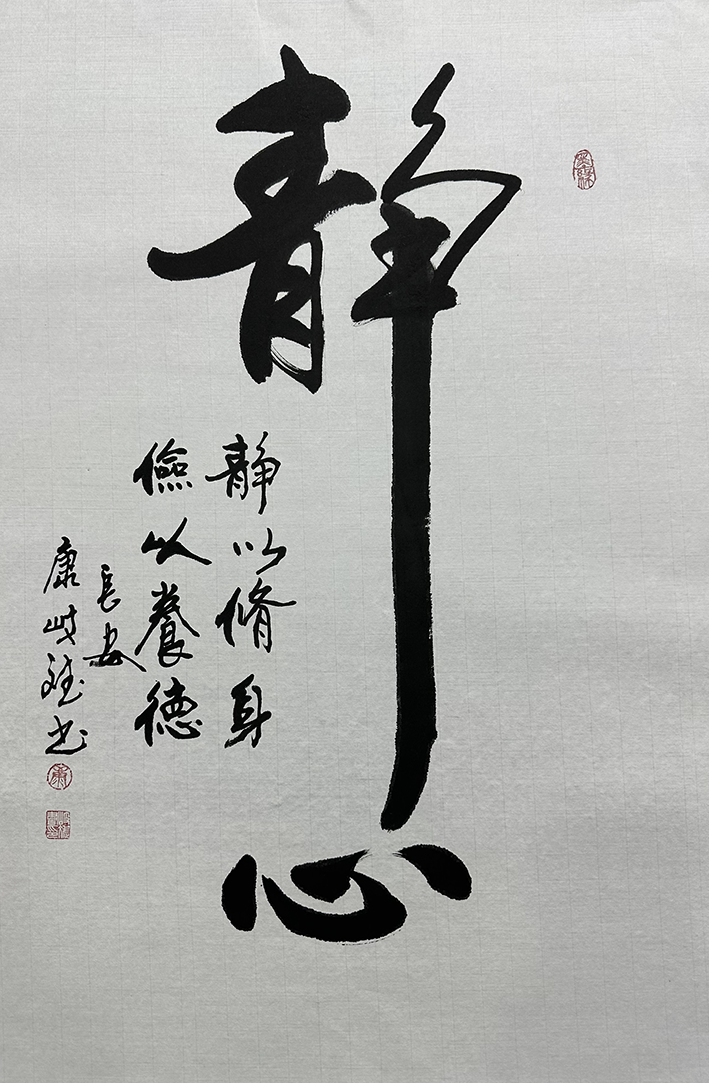 静心
静以脩身
儉以養德
長安
康岐
書